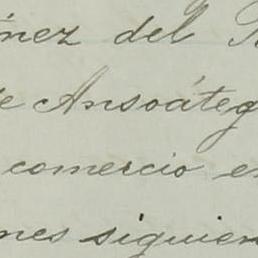 ínez del
e Ansoáteg
comercio e
nes siguien